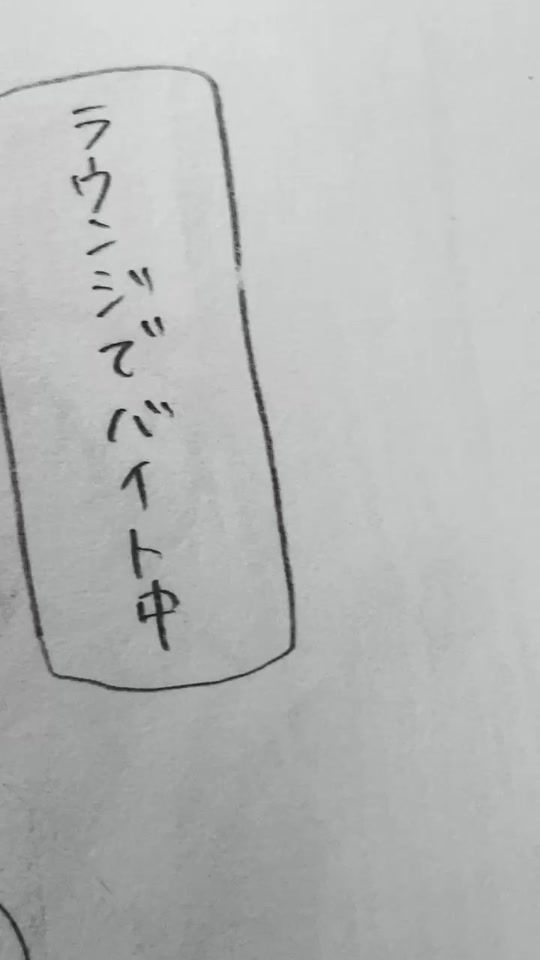 ラウンジでバイト中